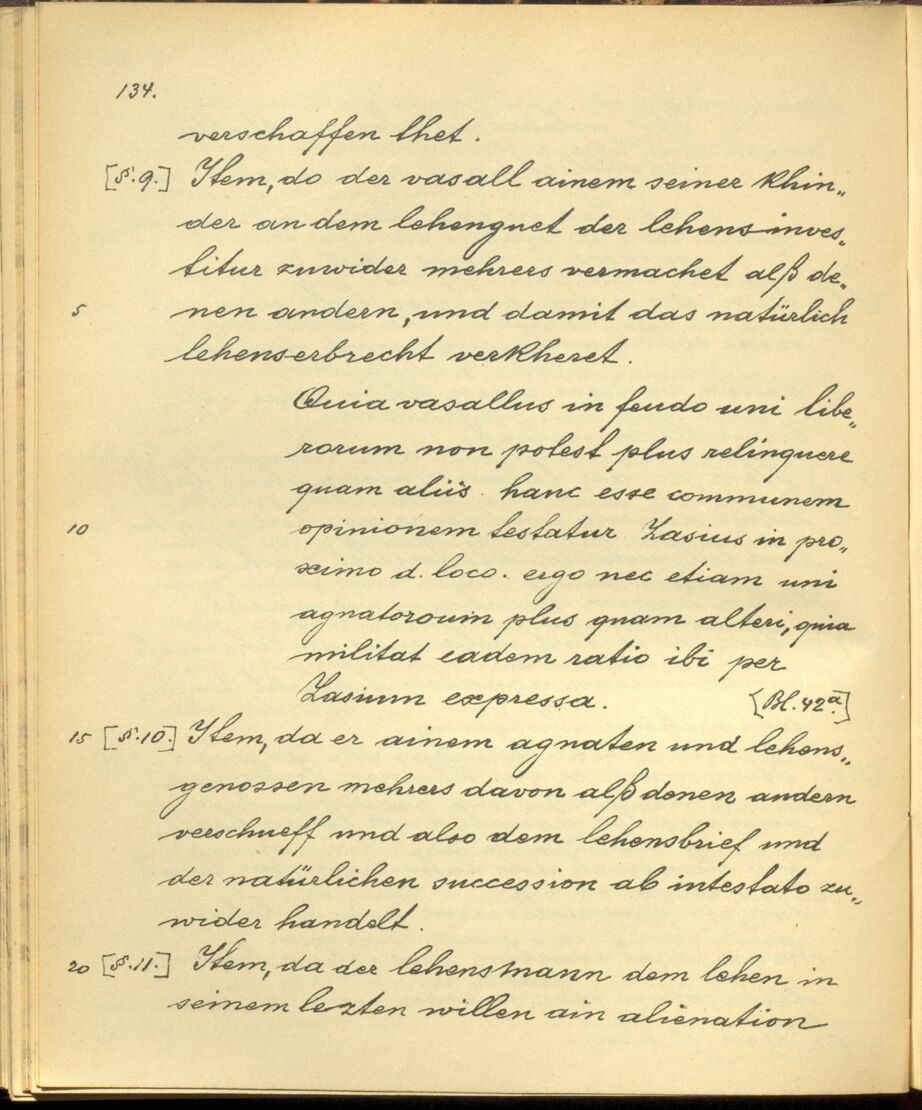 134.
verschaffen thet.
[§.9.] Item, do der vasall ainem seiner khin„
der an dem lehenguet der lehens inves„
titur zuwider mehrers vermachet alß de„
5 nen andern, und damit das natürlich
lehenserbrecht verkheret.
Quia vasallus in feudo uni libe„
rorum non potest plus relinquere
quam aliis. hanc esse communem
10 opinionem testatur Zasius in pro„
ximo d. loco. ergo nec etiam uni
agnatoroum plus quam alteri, quia
militat eadem ratio ibi per
Zasium expressa. [Bl. 42a.]
15 [§.10.] Item, da er ainem agnaten und lehens„
genossen mehrers davon alß denen andern
verschueff und also dem lehensbrief und
der natürlichen succession ab intestato zu„
wider handelt.
20 [§.11.] Item, da der lehensmann dem lehen in
seinem lezten willen ain alienation